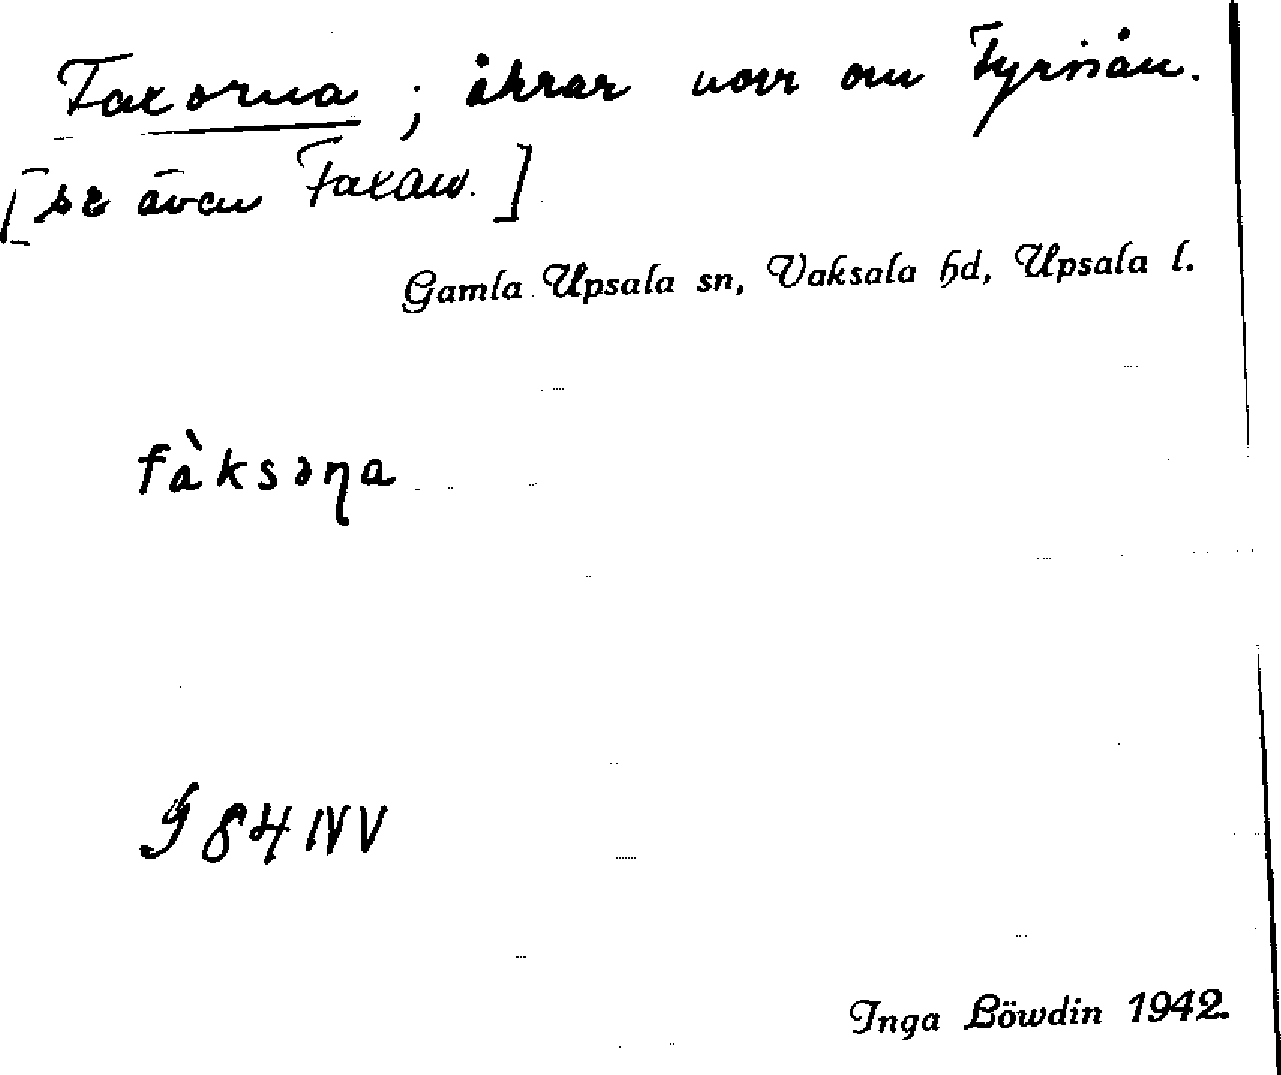 Faxorna ; åkrar norr om Fyrisån.
[se även Faxan.]
Gamla Upsala sn, Vaksala hd, Upsala l.
fàksəɳa
J 84 NV
Inga Löwdin 1942.